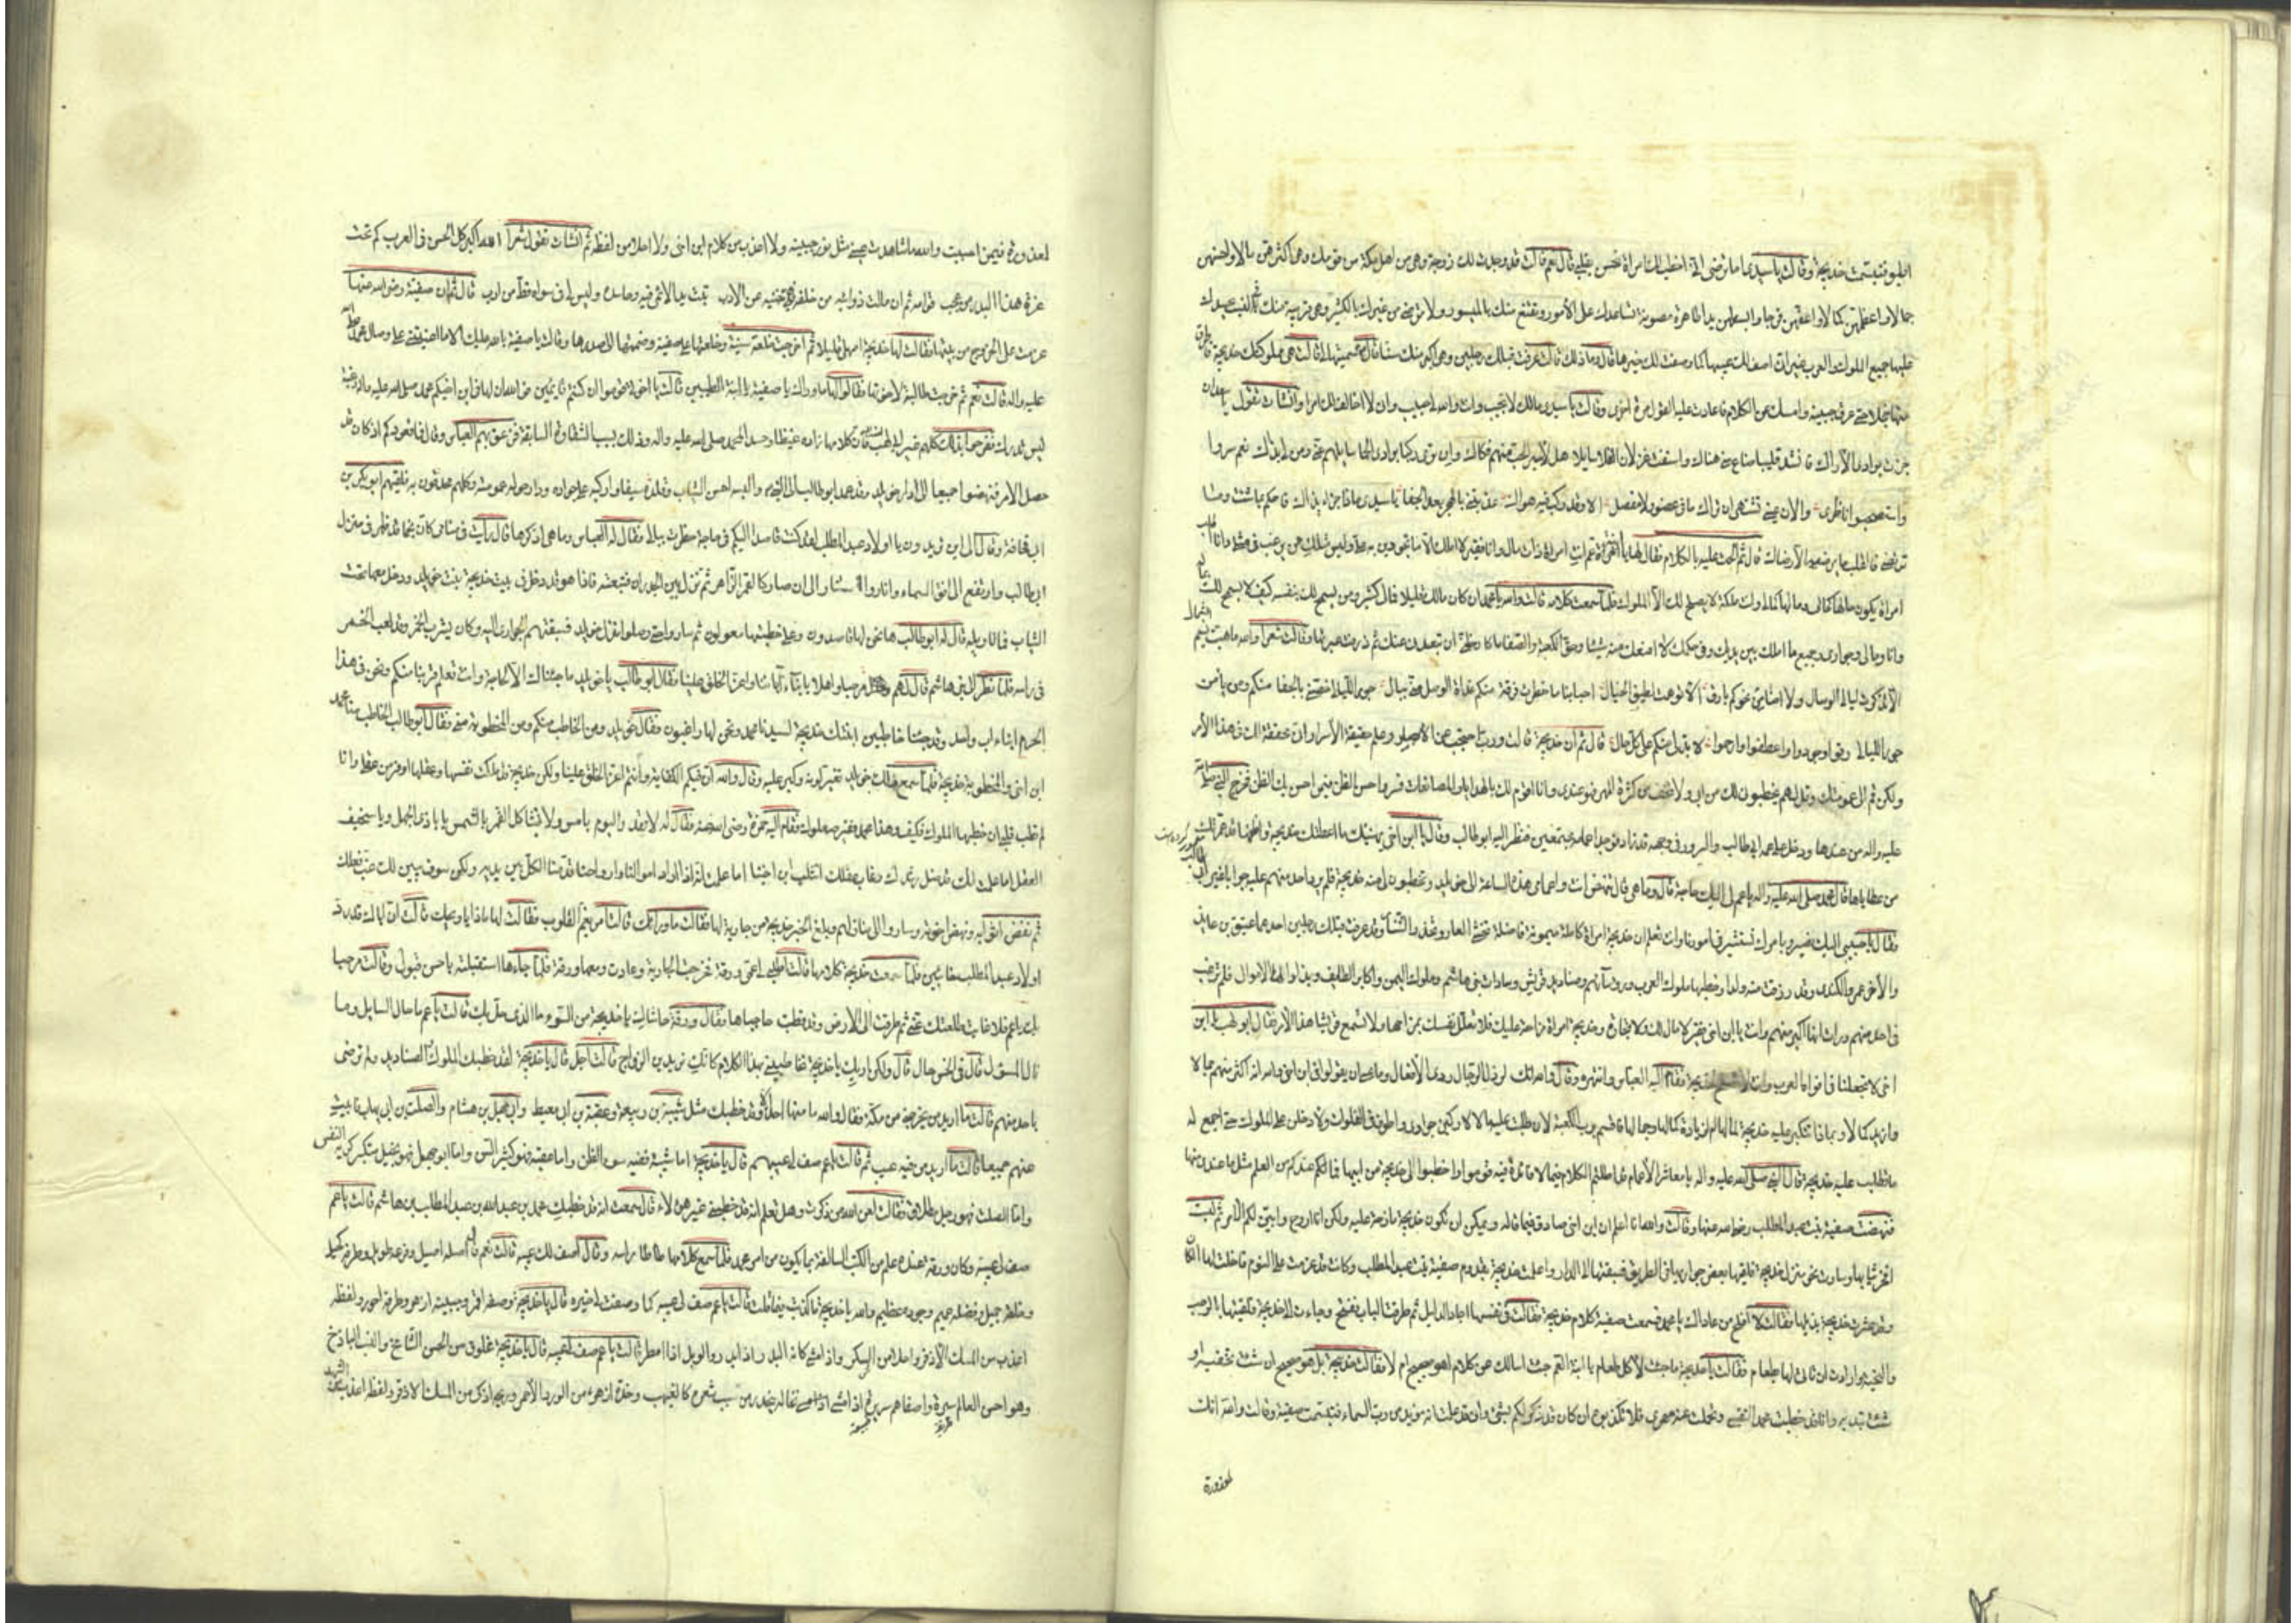 اليلو فتبسمت خديجة وقالت يا سيدي اما ترضى اني اخطب لك امراة تحسن بقلبي قال نعم قالت قد وجدت لك زوجة وهي من اهل مكة من قومك وهي اكثرهن مالا واحسنهن
جمالا واعظمهن كمالا واعفهن فرجا وابسطهن يدا طاهرة مصونة تساعدك على الامور وتقنع منك بالميسور ولا ترضى من غيرك بالكثير وهي قريبة منك في النسب يحسدك
عليها جميع الملوك والعرب غير اني اصف لك عيبها كما وصفت لك خيرها قال وما ذلك قالت عرفت قبلك رجلين وهي اكبر منك سنا قال سميها لي قالت هي مملوكتك خديجة فاطرق
منها خجلا حتى عرق جبينه وامسك عن الكلام فاعادت عليه القول مرة اخرى وقالت يا سيدي مالك لا تجيب وانت والله لي حبيب واني لا اخالف لك امرا وانشات تقول يا سعد ان
جزت بوادي الاراك فانشد قليبا ضاع مني هناك واستفت غزلان الفلا سايلا هل لاسير الحب منهم فكاك وان ترى ركبا بوادي الحمى سايلهم عني ومن لي بذاك نعم سروا
واستصحبوا ناظري والان عيني تشتهي ان تراك ما في من عضو ولا مفصل الا وقد ركب فيه هواك عذبتني بالهجر بعد الجفا يا سيدي ماذا جزاء بذاك فاحكم بما شئت وما
ترتضي فالقلب ما يرضيه الا رضاك قال ثم الحت عليه بالكلام فقال لها يا ابنة العم انت امراة ذات مال وانا فقير لا املك الا ما تجودين به علي وليس مثلك من يرغب في مثلي وانا اطلب
امراة يكون مالها كمالي وحالها كحالي وانت ملكة لا يصلح لك الا الملوك فلما سمعت كلامه قالت والله يا محمد ان كان مالك قليلا فمالي كثير ومن يسمح لك بنفسه كيف لا يسمح لك بماله
وانا ومالي وجواري وجميع ما املك بين يديك وفي حكمك لا امنعك منه شيئا وحق الكعبة والصفا ما كان ظني ان تبعدني عنك ثم ذرفت عبرتها وقالت شعرا والله ما هب نسيم الشمال
الا تذكرت ليالي الوصال ولا اضا من نحوكم بارق الا توهمت لطيف الخيال احبابنا ما خطرت فرقة منكم غداة الوصل مني ببال جور الليالي خصني بالجفا منكم ومن يامن
جور الليال رقوا وجودوا واعطفوا وارحموا لا بد لي منكم على كل حال قال ثم ان خديجة قالت ورب احتجب عن الابصار وعلم حقيقة الاسرار اني محقة لك في هذا الامر
ولكن قم الى عمومتك وقل لهم يخطبوني لك من ابي ولا تخف من كثرة المهر فهو عندي وانا اقوم لك بالهدايا والمصانعات فسر واحسن الظن فيمن احسن بك الظن فخرج النبي صلى الله
عليه واله من عندها ودخل على عمه ابي طالب والسرور في وجهه فوجد اعمامه مجتمعين فنظر اليه ابو طالب وقال يا ابن اخي يهنيك ما اعطتك خديجة واظنها قد غمرتك
من عطاياها قال محمد صلى الله عليه واله يا عم لي اليك حاجة قال وما هي قال تنهض انت واعمامي هذه الساعة الى خويلد وتخطبون لي منه خديجة فلم يرد احد منهم عليه جوابا غير ابي طالب
فقال يا حبيبي اليك نصير وبامرك نستشير في امورنا وانت تعلم ان خديجة امراة كاملة ميمونة فاضلة تخشى العار وتحذر الشنار وقد عرفت قبلك رجلين احدهما عتيق بن عايذ
والاخر عمرو الكندي وقد رزقت منه ولدا وخطبها ملوك العرب ورؤسائهم وصناديد قريش وسادات بني هاشم وملوك اليمن واكابر الطايف وبذلوا لها الاموال فلم ترغب
في احد منهم ورات انها اكبر منهم وانت يا ابن اخي فقير لا مال لك ولا تجارة وخديجة امراة مزاحة عليك فلا تعلل نفسك بمزاحها ولا تسمع قريشا هذا الامر فقال ابو لهب يا ابن
اخي لا تجعلنا في افواه العرب وانت لا تصلح لخديجة فقام اليه العباس وانتهره وقال والله انك لرذل الرجال ردي الافعال وما عسى ان يقولوا في ابن اخي والله انه اكثر منهم جمالا
وازيد كمالا وبماذا تتكبر عليه خديجة لمالها ام لزيادة كمالها وجمالها فاقسم برب الكعبة لان طلبت عليه مالا لاركبن جوادي واطوف في الفلوات ولادخلن على الملوك حتى اجمع له
ما تطلب عليه خديجة قال النبي صلى الله عليه واله يا معاشر الاعمام قد اطلتم الكلام فيما لا فائدة فيه قوموا واخطبوا لي خديجة من ابيها فما عندكم من العلم مثل ما عندي منها
فنهضت صفية بنت عبد المطلب رضي الله عنها وقالت والله انا اعلم ان ابن اخي صادق فيما قاله ويمكن ان تكون خديجة مازحة عليه ولكن انا اروح وابين لكم الامر ثم لبست
افخر ثيابها وسارت نحو منزل خديجة فلقيها بعض جواريها في الطريق فسبقتها الى الدار واعلمت خديجة بقدوم صفية بنت عبد المطلب وكانت قد عزمت على النوم فاخلت لها المكان
وقد عثرت خديجة بذيلها فقالت لا افلح من عاداك يا محمد فسمعت صفية كلام خديجة فقالت في نفسها اجاد الدليل ثم طرقت الباب ففتح وجاءت الى خديجة فلقيتها بالرحب
والتحية وارادت ان تاتي لها بطعام فقالت يا خديجة ما جئت لاكل طعام يا ابنة العم جئت اسالك عن كلام اهو صحيح ام لا فقالت خديجة بل هو صحيح ان شئت تخفيه او
شئت تبديه وانا قد خطبت محمدا لنفسي وتحملت عنه مهري فلا تكذبوه ان كان قد ذكر لكم بشيء واني قد علمت انه مؤيد من رب السماء فتبسمت صفية وقالت والله انك
لمعذورة
لمعذورة فيمن احببت والله ما شاهدت عيني مثل نور جبينه ولا اعذب من كلام ابن اخي ولا احلا من لفظه ثم انشات تقول شعرا الله اكبر كل الحسن في العرب كم تحت
غرة هذا البدر من عجب قوامه ثم ان مالت ذوائبه من خلفه فهي تغنيه عن الادب تبت يد اللائمي فيه وحاسده وليس لي في سواه قط من ارب قال ثم ان صفية رضي الله عنها
عزمت على الخروج من بيتها فقالت لها خديجة امهلي قليلا ثم اخرجت خلعة سنية وخلعتها على صفية وضمتها الى صدرها وقالت يا صفية بالله عليك الا ما اعنتيني على وصال محمد صلى الله
عليه واله قالت نعم ثم خرجت طالبة لاخوتها فقالوا لها ما وراك يا صفية يا ابنة الطيبين قالت يا اخوتي قوموا ان كنتم قائمين فوالله ان لها في ابن اخيكم محمد صلى الله عليه واله رغبة
ليس تدرك ففرحوا بذلك كلهم غير ابي لهب فان كلامها زاده غيظا وحسدا لمحمد صلى الله عليه واله وذلك بسبب الشقاوة السابقة فزعق بهم العباس وقال فما قعودكم اذ كان قد
حصل الامر فنهضوا جميعا الى دار خويلد وقد عمد ابو طالب الى النبي والبسه احسن الثياب وقلده سيفا واركبه على جواده ودار حوله عمومته وكلهم محدقون به فلقيهم ابو بكر بن
ابي قحافة وقال الى اين تريدون يا اولاد عبد المطلب لقد كنت قاصدا اليكم في حاجة خطرت ببالي فقال له العباس وما هي اذكرها قال رايت في منامي كان نجما قد ظهر في منزل
ابي طالب وارتفع الى افق السماء وانار واستنار الى ان صار كالقمر الزاهر ثم نزل بين الجدران فتبعته فاذا هو قد دخل في بيت خديجة بنت خويلد ودخل معها تحت
الثياب فما تاويله قال له ابو طالب ها نحن لها قاصدون وعلى خطبتها معولون ثم ساروا حتى وصلوا منزل خويلد فسبقتهم الجواري اليه وكان يشرب الخمر وقد لعب الخمر
في راسه فلما نظر الى بني هاشم قام لهم وقال مرحبا واهلا بابناء آبائنا واعز الخلق علينا فقال ابو طالب يا خويلد ما جئناك الا لحاجة وانت تعلم قربنا منكم ونحن في هذا
الحرم ابناء اب واحد وقد جئنا خاطبين ابنتك خديجة لسيدنا محمد ونحن لها راضيون فقال خويلد ومن الخاطب منكم ومن المخطوبة مني فقال ابو طالب الخاطب منا محمد
ابن اخي والمخطوبة خديجة فلما سمع ذلك خويلد تغير لونه وكبر عليه وقال والله ان فيكم الكفاية وانتم اعز الخلق علينا ولكن خديجة قد ملكت نفسها وعقلها اوفر من عقلي وانا
لم تطب قلبي ان خطبها الملوك فكيف وهذا محمد فقير صعلوك فقام اليه حمزة رضي الله عنه فقال له لا تقدر اليوم بامس ولا تشاكل القمر بالشمس يا بادي الجهل ويا سخيف
العقل اما علمت انك قد ضل رشدك وغاب عقلك اتثلب ابن اخينا اما علمت انه اذا اراد اموالنا وارواحنا قدمنا الكل بين يديه ولكن سوف يبين لك غب فعلك
ثم نفض اثوابه ونهض اخوته وساروا الى منازلهم وبلغ الخبر خديجة من جارية لها فقالت ما وراءك قالت امر يغم القلوب فقالت لها ماذا يا ويحك قالت ان اباك قد رد
اولاد عبد المطلب خائبين فلما سمعت خديجة كلامها قالت اطلبي لي عمي ورقة فخرجت الجارية وعادت ومعها ورقة فلما جاءها استقبلته باحسن قبول وقالت مرحبا
بك يا عم فلا غابت طلعتك عني ثم طرقت الى الارض وقد قطبت حاجباها فقال ورقة حاشاك يا خديجة من السوء ما الذي حل بك قالت يا عم ما حال السايل وما
نال المسؤل قال في انحس حال قال ولكن اريك يا خديجة تخاطبيني بهذا الكلام كانك تريدين الزواج قالت اجل قال يا خديجة لقد خطبك الملوك الصناديد ولم ترضى
باحد منهم قالت ما اريد من يخرجني من مكة فقال والله ما منها احد الا وقد خطبك مثل شيبة بن ربيعة وعقبة بن ابي معيط وابي جهل بن هشام والصلت بن ابي يهاب فابيتي
عنهم جميعا قالت ما اريد من فيه عيب ثم قالت يا عم صف لي عيبهم قال يا خديجة اما شيبة ففيه سوء الظن واما عقبة فهو كثير السن واما ابو جهل فهو بخيل متكبر كريه النفس
واما الصلت فهو رجل مطلاق فقالت لعن الله من ذكرت وهل تعلم انه قد خطبني غير هؤلاء قال سمعت انه قد خطبك محمد بن عبدالله بن عبد المطلب بن هاشم قالت يا عم
صف لي عيبه وكان ورقة عنده علم من الكتب السالفة بما يكون من امر محمد فلما سمع كلامها طاطا براسه وقال اصف لك عيبه قالت نعم قال اصله اصيل وفرعه طويل وطرفه كحيل
وخلقه جميل وفضله عميم وجوده عظيم والله يا خديجة ما كذبت فيما قلت قالت يا عم صف لي عيبه كما وصفت لي خيره قال يا خديجة وصفه اقمر وجبينه ازهر وطرفه احور ولفظه
اعذب من المسك الاذفر واحلا من السكر واذا مشى كانه البدر اذا بدر والوبل اذا امطر قالت يا عم صف لي عيبه قال يا خديجة مخلوق من الحسن الشامخ والنسب الباذخ
وهو احسن العالم سيرة واصفاهم سريرة اذا مشى تخاله ينحدر من صبب شعره كالغيهب وخده ازهر من الورد الاحمر وريحه اذكى من المسك الاذفر ولفظه اعذب من الشهد